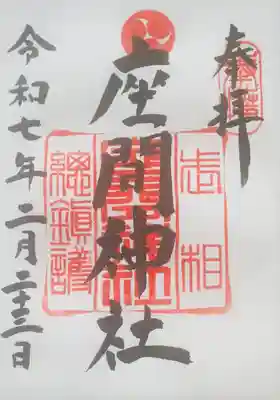 奉拝
武相
座間神社
總鎮護
令和七年二月二十三日